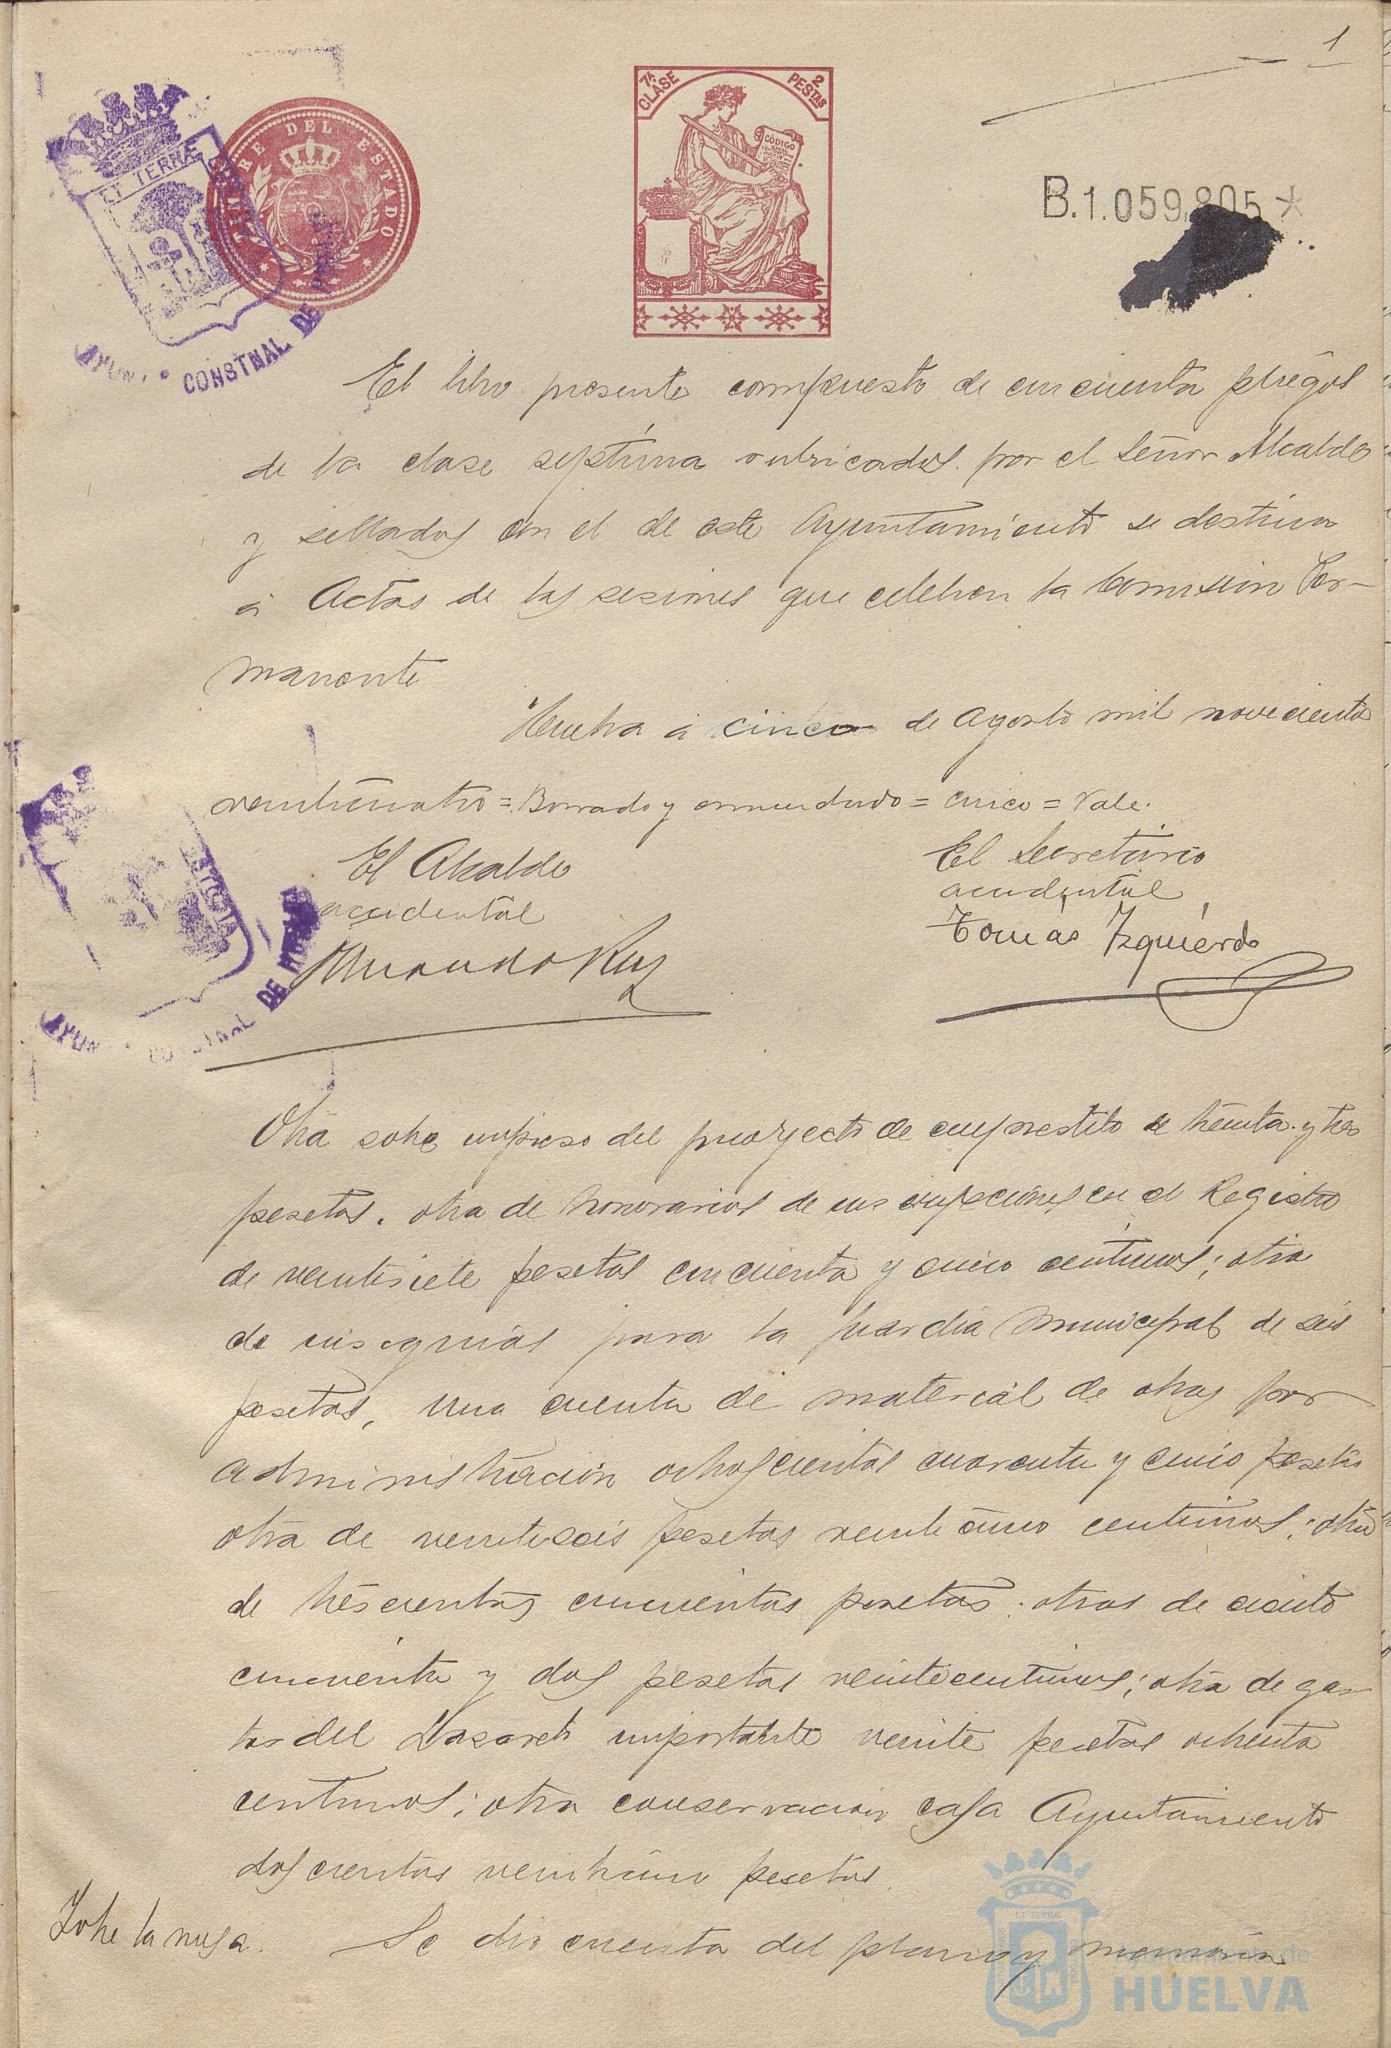 1
7ª CLASE
2 PESTAS
CÓDIGO
TIMBRE DEL ESTADO
ET TERRÆ
AYUN CONSTNAL DE
B.1.059.805 *
El libro presente compuesto de cincuenta pliegos
de la clase septima rubricados por el Señor Alcalde
y sellados con el de este Ayuntamiento se destina
á Actas de las sesiones que celebren la Comision Per-
manente
Huelva á cinco de Agosto mil novecientos
veinticuatro = Borrado y enmendado = cinco = Vale.
El Alcalde
accidental
El Secretario
accidental
Tomás Izquierdo
AYUN CONSTNAL DE HUELVA
Otra sobre impreso del proyecto de emprestito de treinta y tres
pesetas. otra de honorarios de inscripciones en el Registro
de veintisiete pesetas cincuenta y cinco centimos; otra
de insignias para la Guardia Municipal de seis
pesetas, una cuenta de material de obras por
administración ochocientas cuarenta y cinco pesetas
otra de veintiseis pesetas veinticinco centimos; otra
de trescientas cincuentas pesetas; otras de ciento
cincuenta y dos pesetas veinte centimos; otra de gas-
tos del Lazareto importante veinte pesetas ochenta
centimos; otra conservacion casa Ayuntamiento
doscientas veinticinco pesetas.
Sobre la
Se dio cuenta del plano y memoria
ET TERRA
Ayuntamiento de
HUELVA